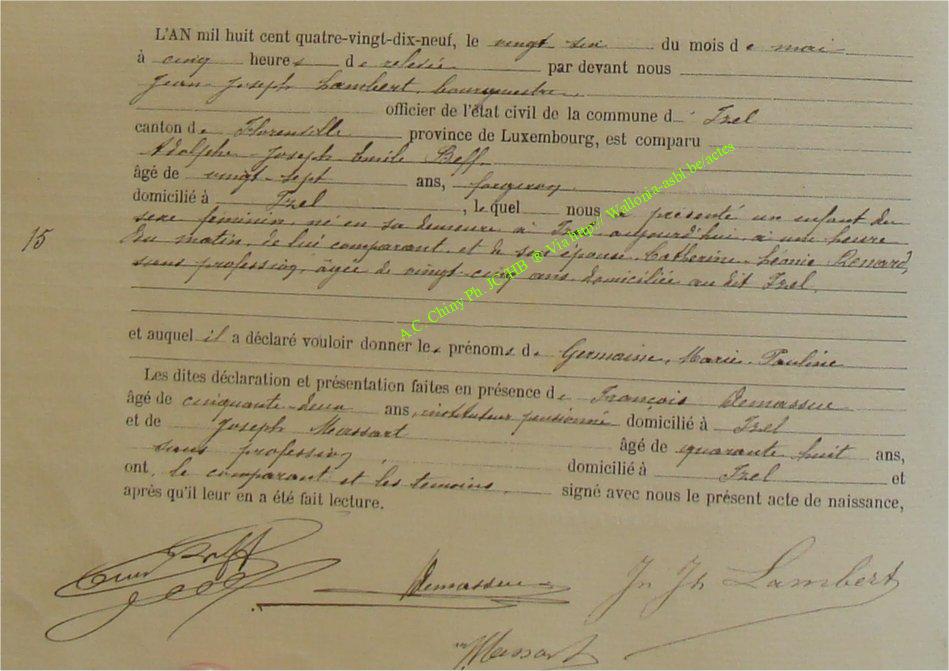 L'AN mil huit cent quatre-vingt-dix-neuf, le vingt six du mois de mai
à cinq heures de relevée par devant nous
Jean Joseph Lambert, bourgmestre
officier de l'état civil de la commune d'Izel
canton de Florenville province de Luxembourg, est comparu
Adolphe Joseph Emile Reff,
âgé de vingt-sept ans, forgeron
domicilié à Izel, lequel nous a présenté un enfant du
sexe féminin, né en sa demeure à Izel aujourd'hui, à une heure
15
du matin, de lui comparant, et de son épouse Catherine Léonie Renard,
sans profession, âgée de vingt-cinq ans, domiciliée au dit Izel.
et auquel il a déclaré vouloir donner les prénoms de Germaine, Marie, Pauline
Les dites déclaration et présentation faites en présence de François Demasseu
âgé de cinquante-deux ans, instituteur pensionné domicilié à Izel
et de Joseph Massart âgé de quarante huit ans,
sans profession domicilié à Izel et
ont, le comparant et les temoins, signé avec nous le présent acte de naissance,
après qu'il leur en a été fait lecture.
A.C. Chiny Ph. JC-HB ® Via http// Wallonia-asbl.be/actes
Reff
Demasseu
Jn Jh Lambert
Massart